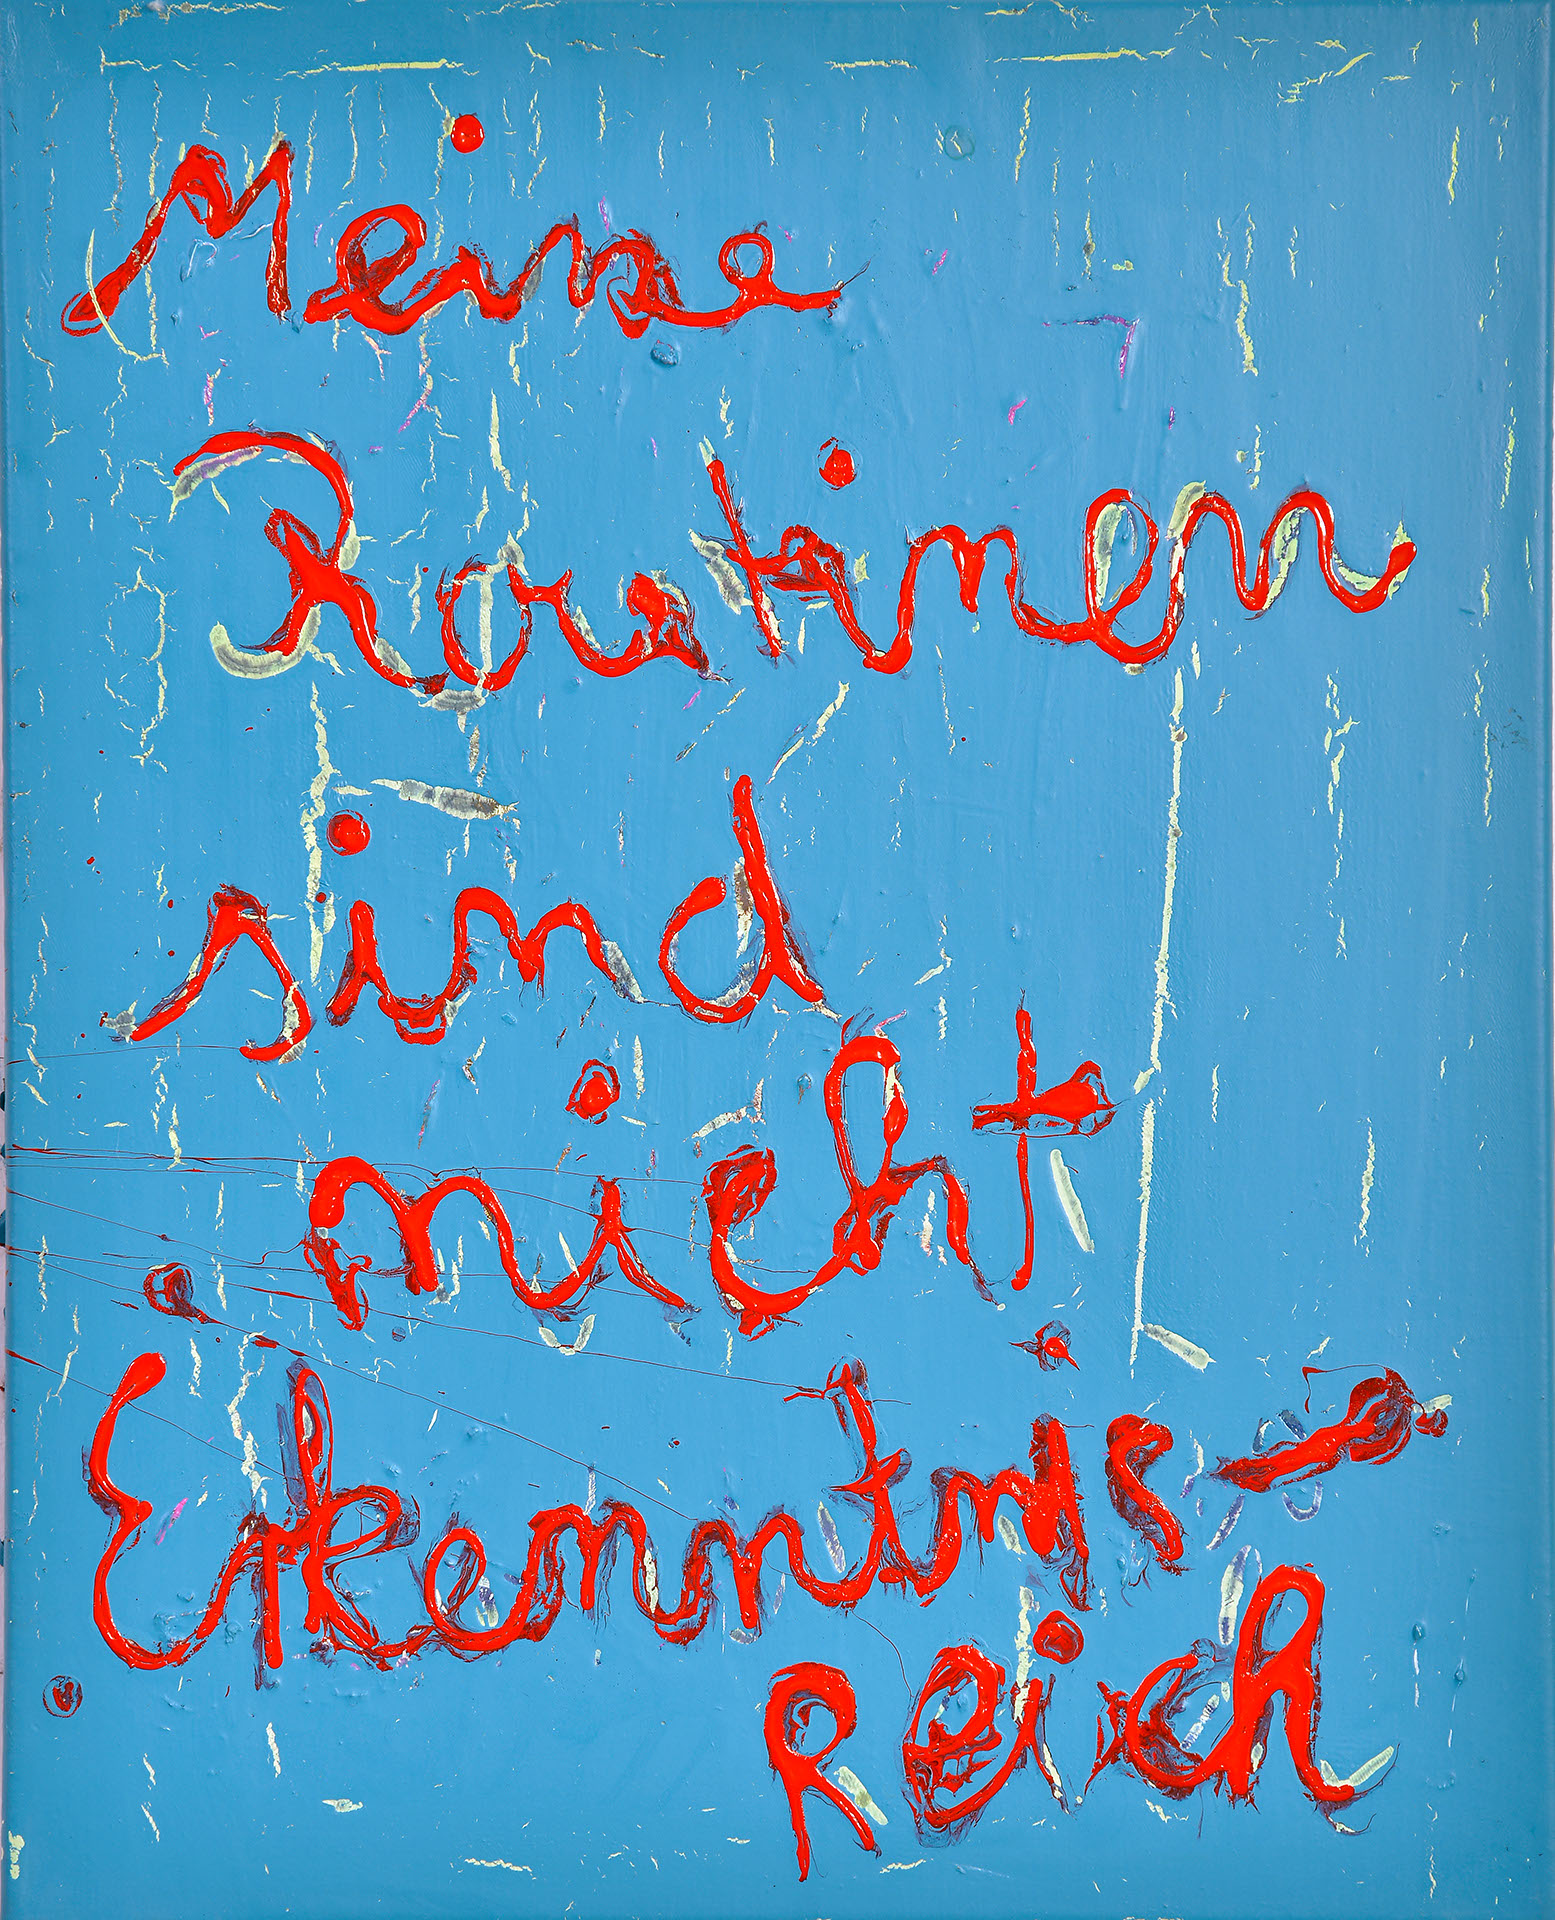 Meine
Routinen
sind
nicht
Erkenntnis-
Reich